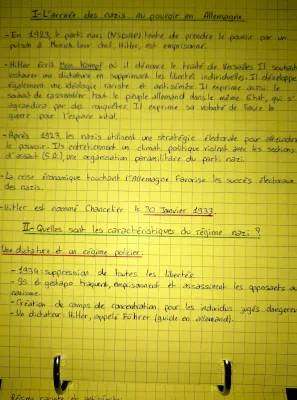 I-L'arrivée des nazis au pouvoir en Allemagne
- En 1923, le parti nazi (NSDAP) tente de prendre le pouvoir par un
putsch à Munich. Leur chef, Hitler, est emprisonné.
- Hitler écrit Mein Kampf où il dénonce le traité de Versailles. Il souhaite
instaurer une dictature en supprimant les libertés individuelles. Il développe
également une idéologie raciste et antisémite. Il exprime aussi le
souhait de rassembler tout le peuple allemand dans le même Etat, qui s'
agrandira par des conquêtes. Il exprime sa volonté de faire la
guerre pour l'espace vital.
- Après 1923, les nazis utilisent une stratégie électorale pour atteindre
le pouvoir. Ils entretiennent un climat politique violent avec les sections
d'assaut (S.A.), une organisation paramilitaire du parti nazi.
- La crise économique touchant l'Allemagne favorise les succès électoraux
des nazis.
- Hitler est nommé Chancelier le 30 Janvier 1933.
II- Quelles sont les caractéristiques du régime nazi ?
Une dictature et un régime policier:
- 1934 suppression de toutes les libertés.
- SS et gestapo traquent, emprisonnent et assassinent les opposants au
nazisme.
- Création de camps de concentration pour les individus jugés dangereux
- Un dictateur: Hitler, appelé Führer (guide en allemand).